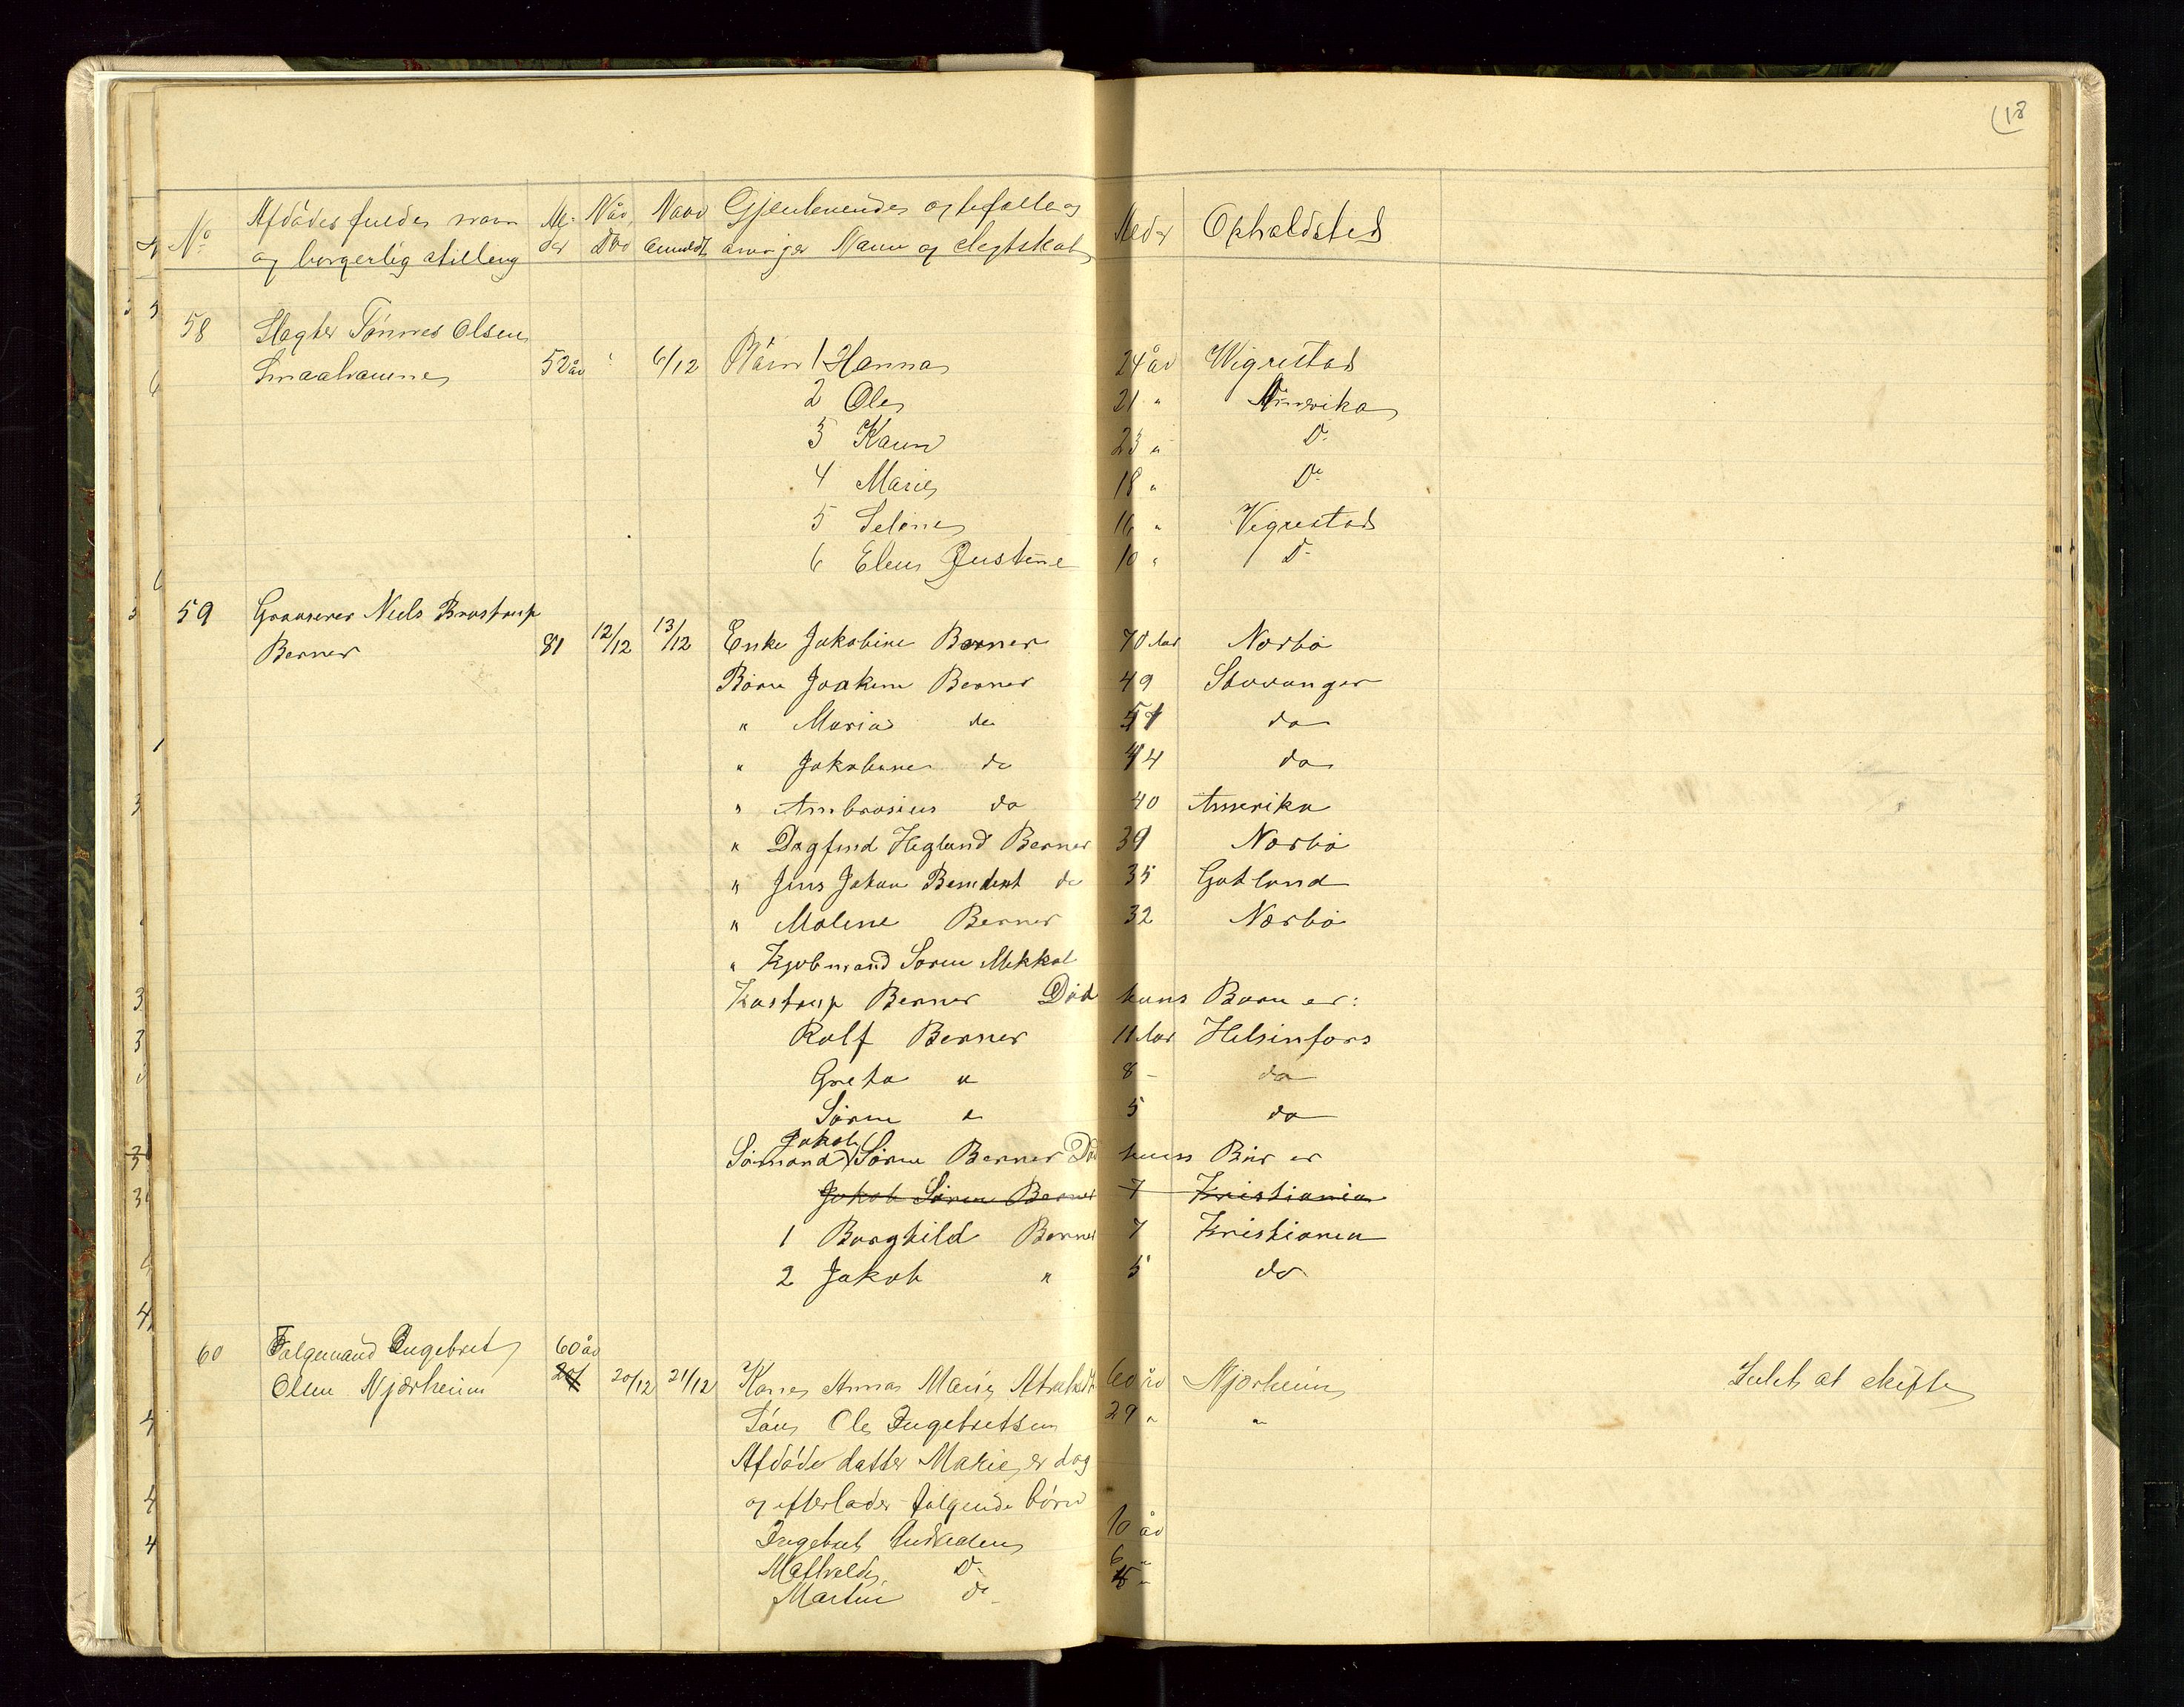 18
No Afdødes fulde navn Al- Når Naar Gjenlevendes ægtefælle og Alder Opholdsted
og borgerlig stilling der Død anmeldt arvinger Navn og slegtskab
58 Slagter Tønnes Olsen
Smaahaunne 52 år 6/12 Børn 1 Hanna 24 år Wigrestad
2 Ole 21 " Amerika
3 Karen 23 " Do
4 Marie 18 " Do
5 Seline 16 " Vigrestad
6 Elen Justine 10 " Do
59 Grosserer Niels Brostrup
Berner 81 12/12 13/12 Enke Jakobine Berner 70 Aar Nærbø
Børn Joakim Berner 49 Stavanger
" Maria do 47 do
" Jakobine do 44 do
" Ambrosius do 40 Amerika
" Dagfind Hegland Berner 39 Nærbø
" Jens Johan Bendent do 35 Gotland
" Moline Berner 32 Nærbø
" Kjøbmand Søren Mikkal
Kastrup Berner Død hans Børn er:
Rolf Berner 11 Aar Helsinfors
Greta " 8 - do
Søren " 5 do
Jakob
Sømand Søren Berner Død hans Bør er
Jakob Søren Berner 7 Kristiania
1 Borghild Berner 7 Kristiania
2 Jakob " 5 do
60 Følgemand Ingebret 60 år
Olsen Njærheim 20/12 21/12 Kone Anna Marie 60 år Njærheim Intet at skifte
Søn Ole Ingebretsen 29 " "
Afdøde datter Marie er dog
og efterlader følgende børn
Ingebret 10 år
Mathelde Do 6 "
Martin do